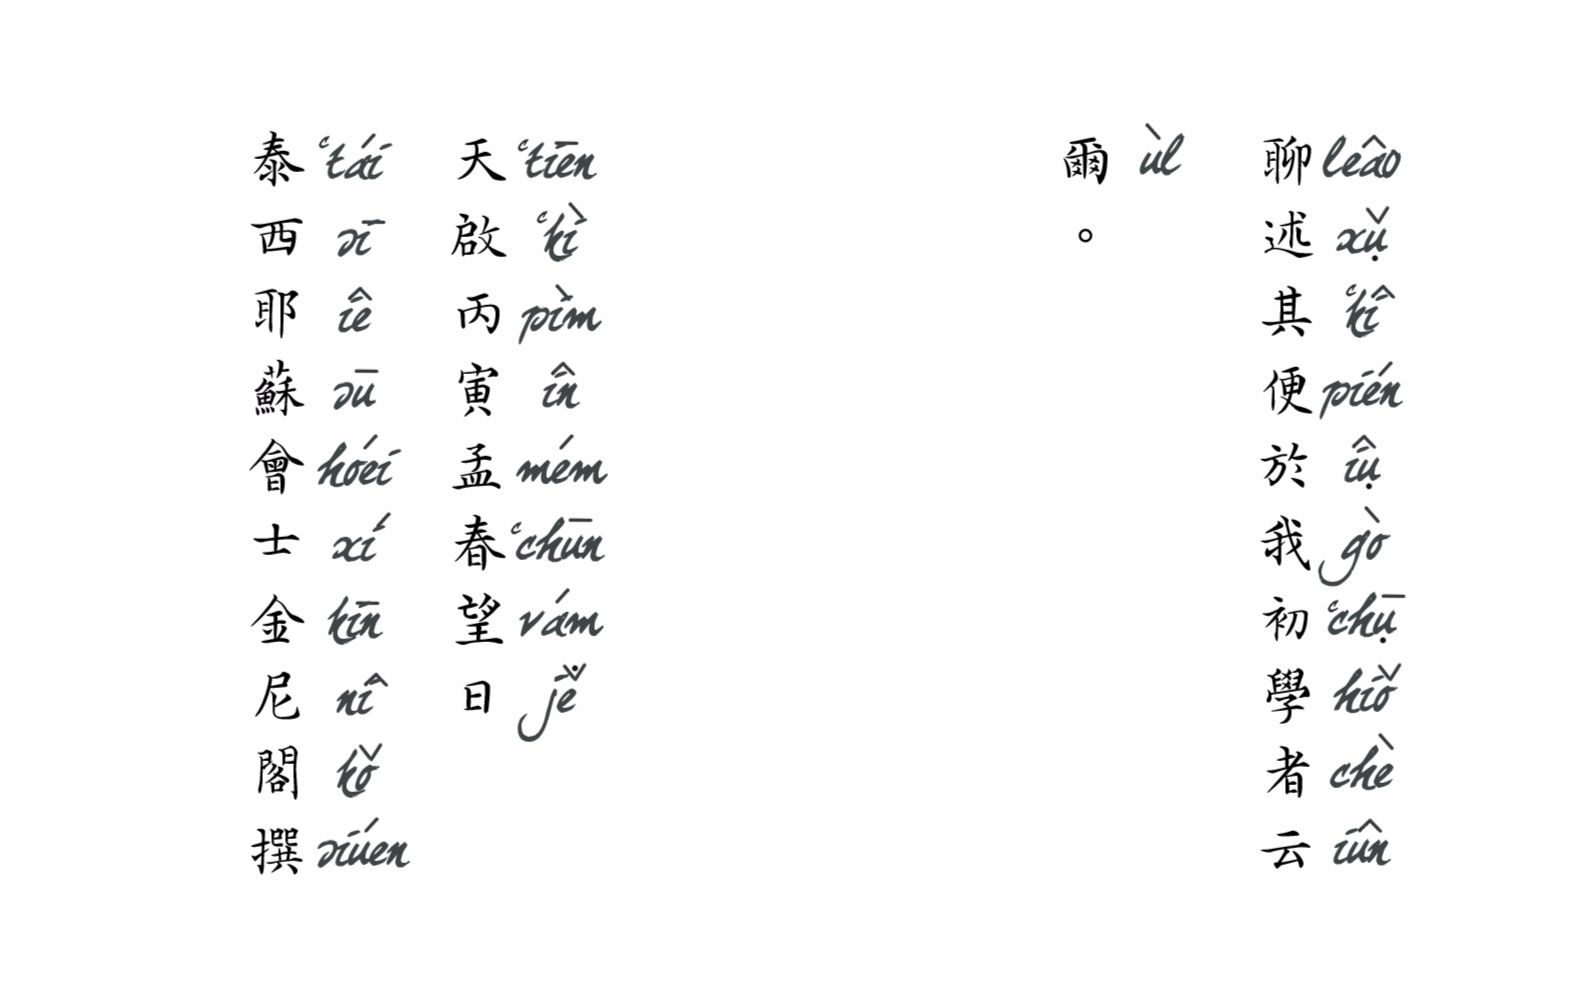 聊 leâo 述 xụ̌ 其 ʻkî 便 pién 於 iụ̂ 我 gò 初 ʻchụ̄ 學 hiǒ 者 chè 云 iûn
爾 ùl 。
天 ʻtiēn 啟 ʻkì 丙 pìm 寅 în 孟 mém 春 ʻchūn 望 vám 日 jě̇
泰 ʻtái 西 sī 耶 iê 蘇 sū 會 hóei 士 xí 金 kīn 尼 nî 閣 kǒ 撰 siúen